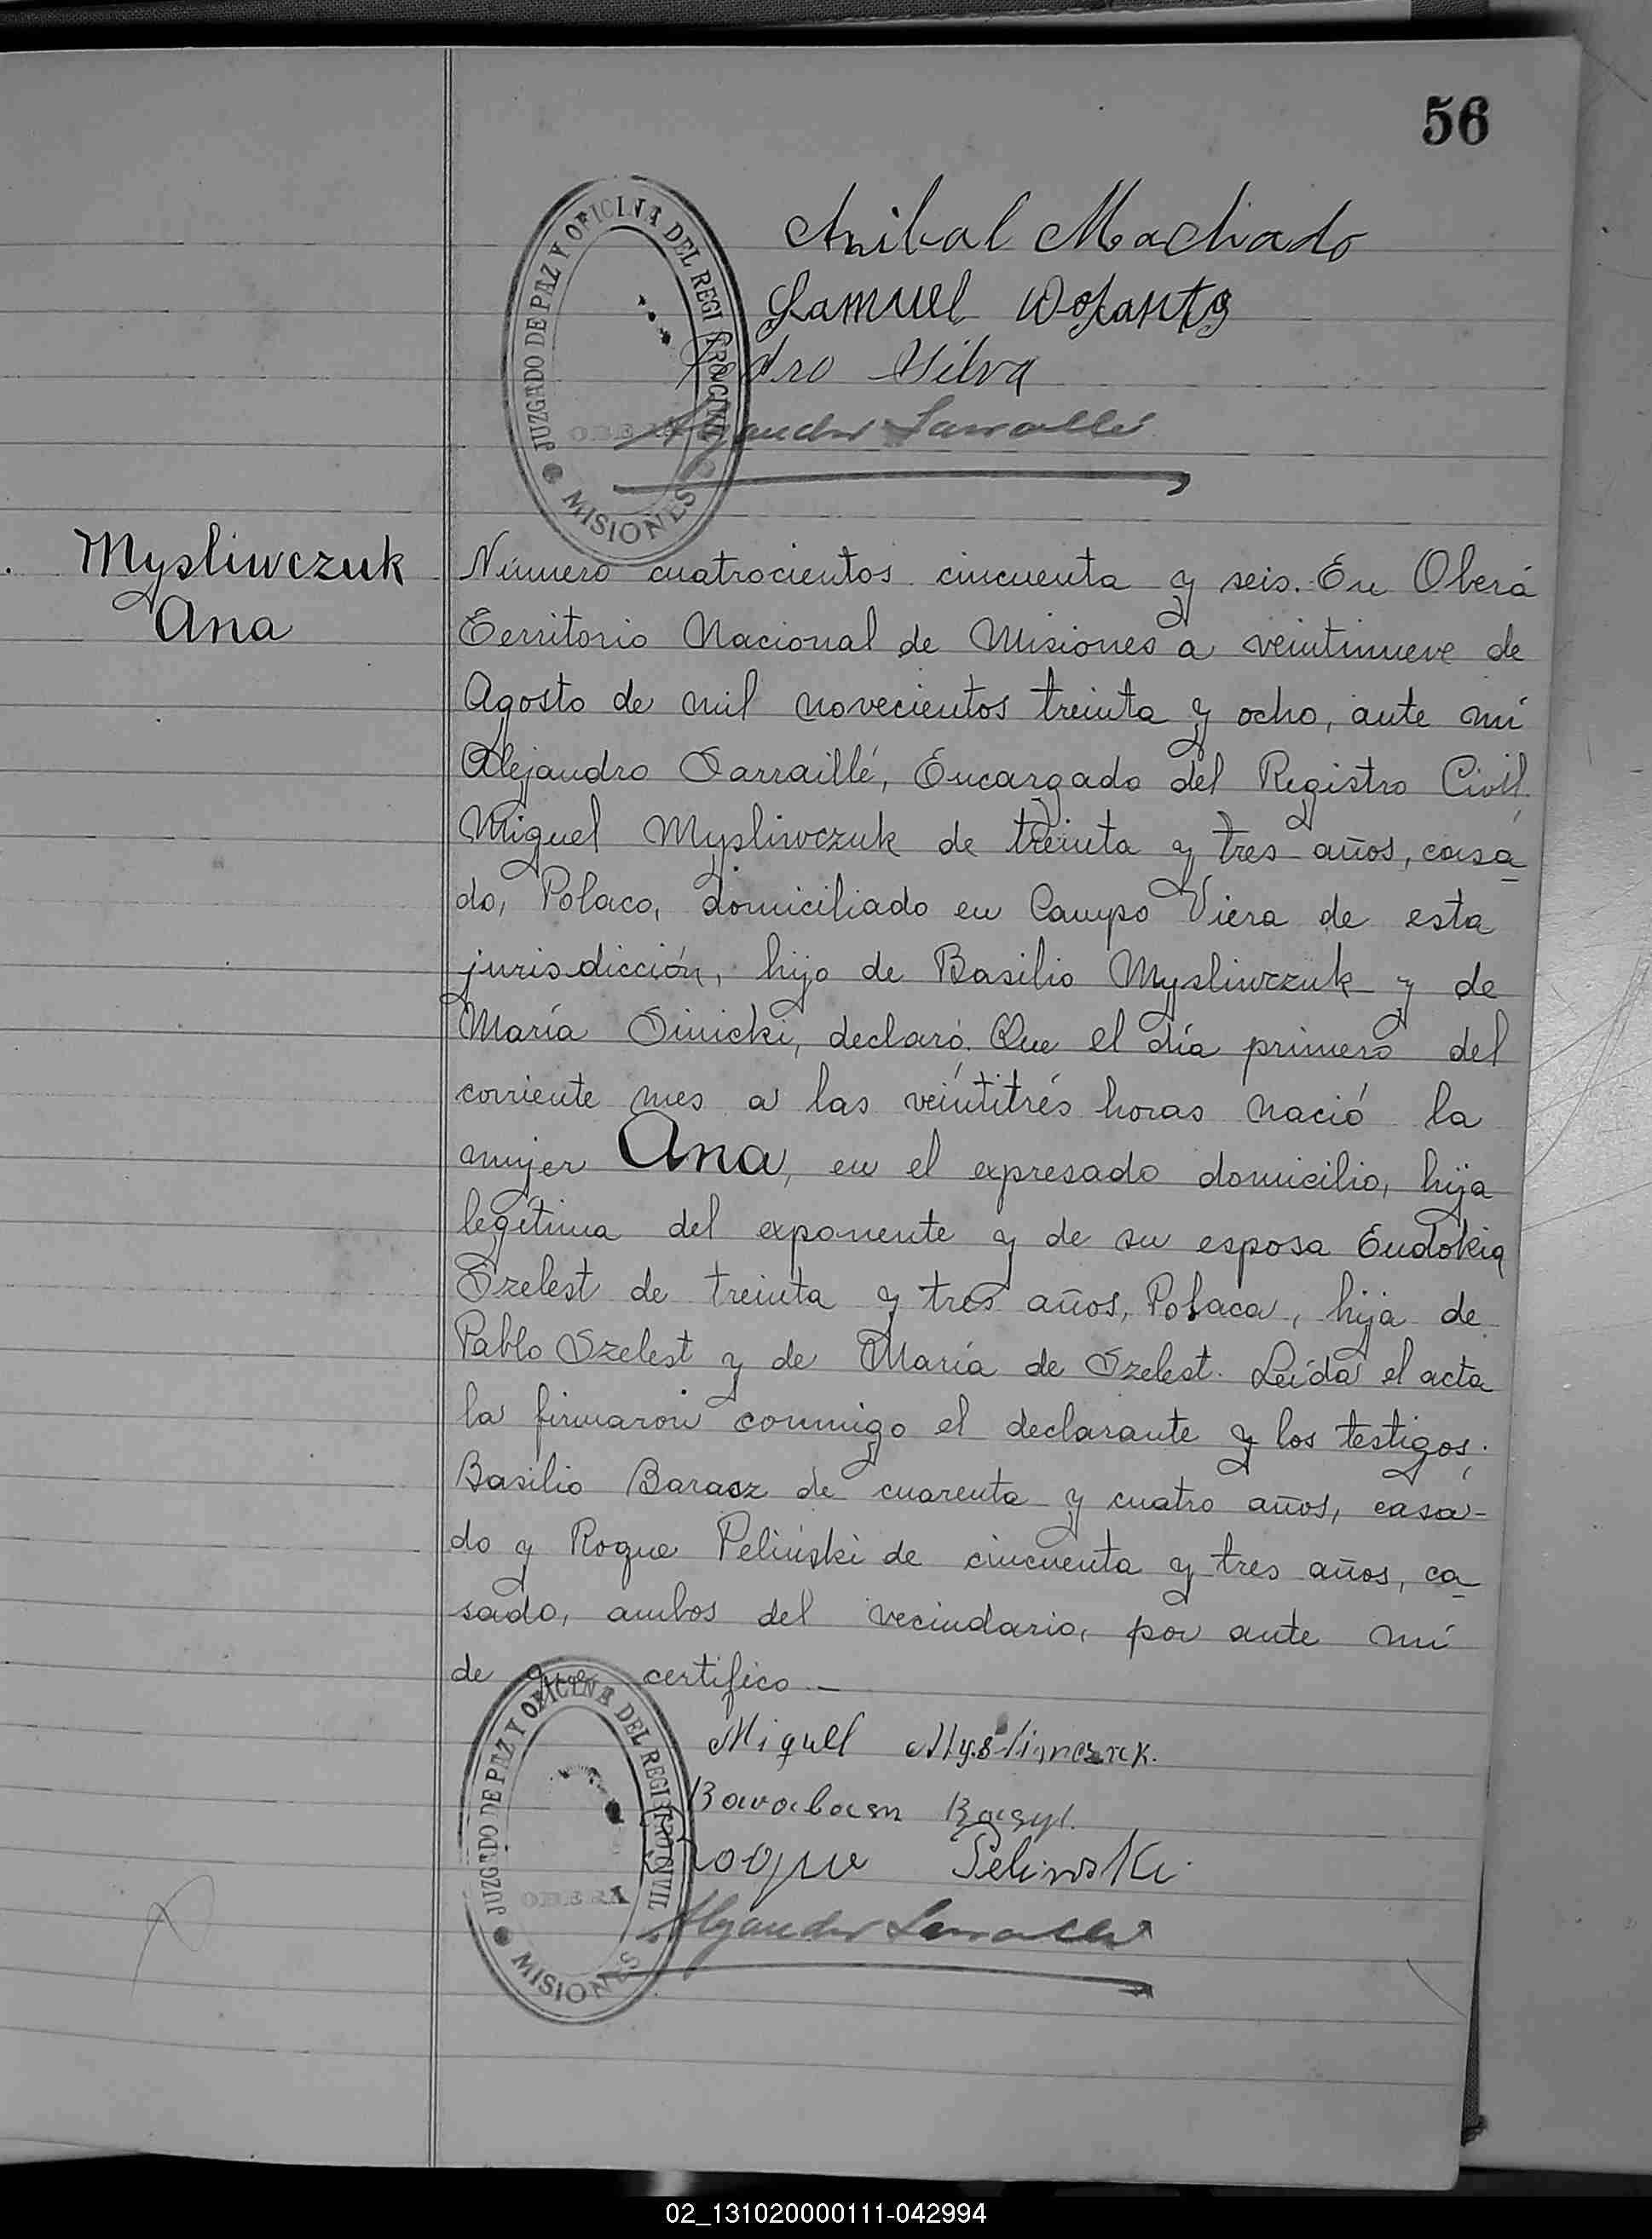 56
JUZGADO DE PAZ Y OFICINA DEL REGISTRO CIVIL
OBERA
MISIONES
Anibal Machado
Samuel
Pedro Silva
Alejandro Sarraillé
Mysliwczuk
Ana
Número cuatrocientos cincuenta y seis. En Oberá
Territorio Nacional de Misiones a veintinueve de
Agosto de mil novecientos treinta y ocho, ante mí
Alejandro Sarraillé, Encargado del Registro Civil,
Miguel Mysliwczuk de treinta y tres años, casa
do, Polaco, domiciliado en Campo Viera de esta
jurisdicción, hijo de Basilio Mysliwczuk y de
María Sinicki, declaró. Que el día primero del
corriente mes a las veintitrés horas nació la
mujer Ana, en el expresado domicilio, hija
legítima del exponente y de su esposa Eudokia
Szelest de treinta y tres años, Polaca, hija de
Pablo Szelest y de María de Szelest. Leída el acta
la firmaron conmigo el declarante y los testigos.
Basilio Baracz de cuarenta y cuatro años, casa-
do y Roque Pelinski de cincuenta y tres años, ca
sado, ambos del vecindario, por ante mí
de que certifico.—
Miguel Mysliwczuk.
Bazyl.
Roque Pelinski
Alejandro Sarraillé
JUZGADO DE PAZ Y OFICINA DEL REGISTRO CIVIL
OBERA
MISIONES
02_131020000111-042994